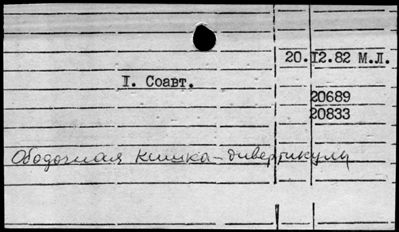 20.12.82 М.Л.
I. Соавт.
20689
20833
Ободочная кишка-дивертикулы